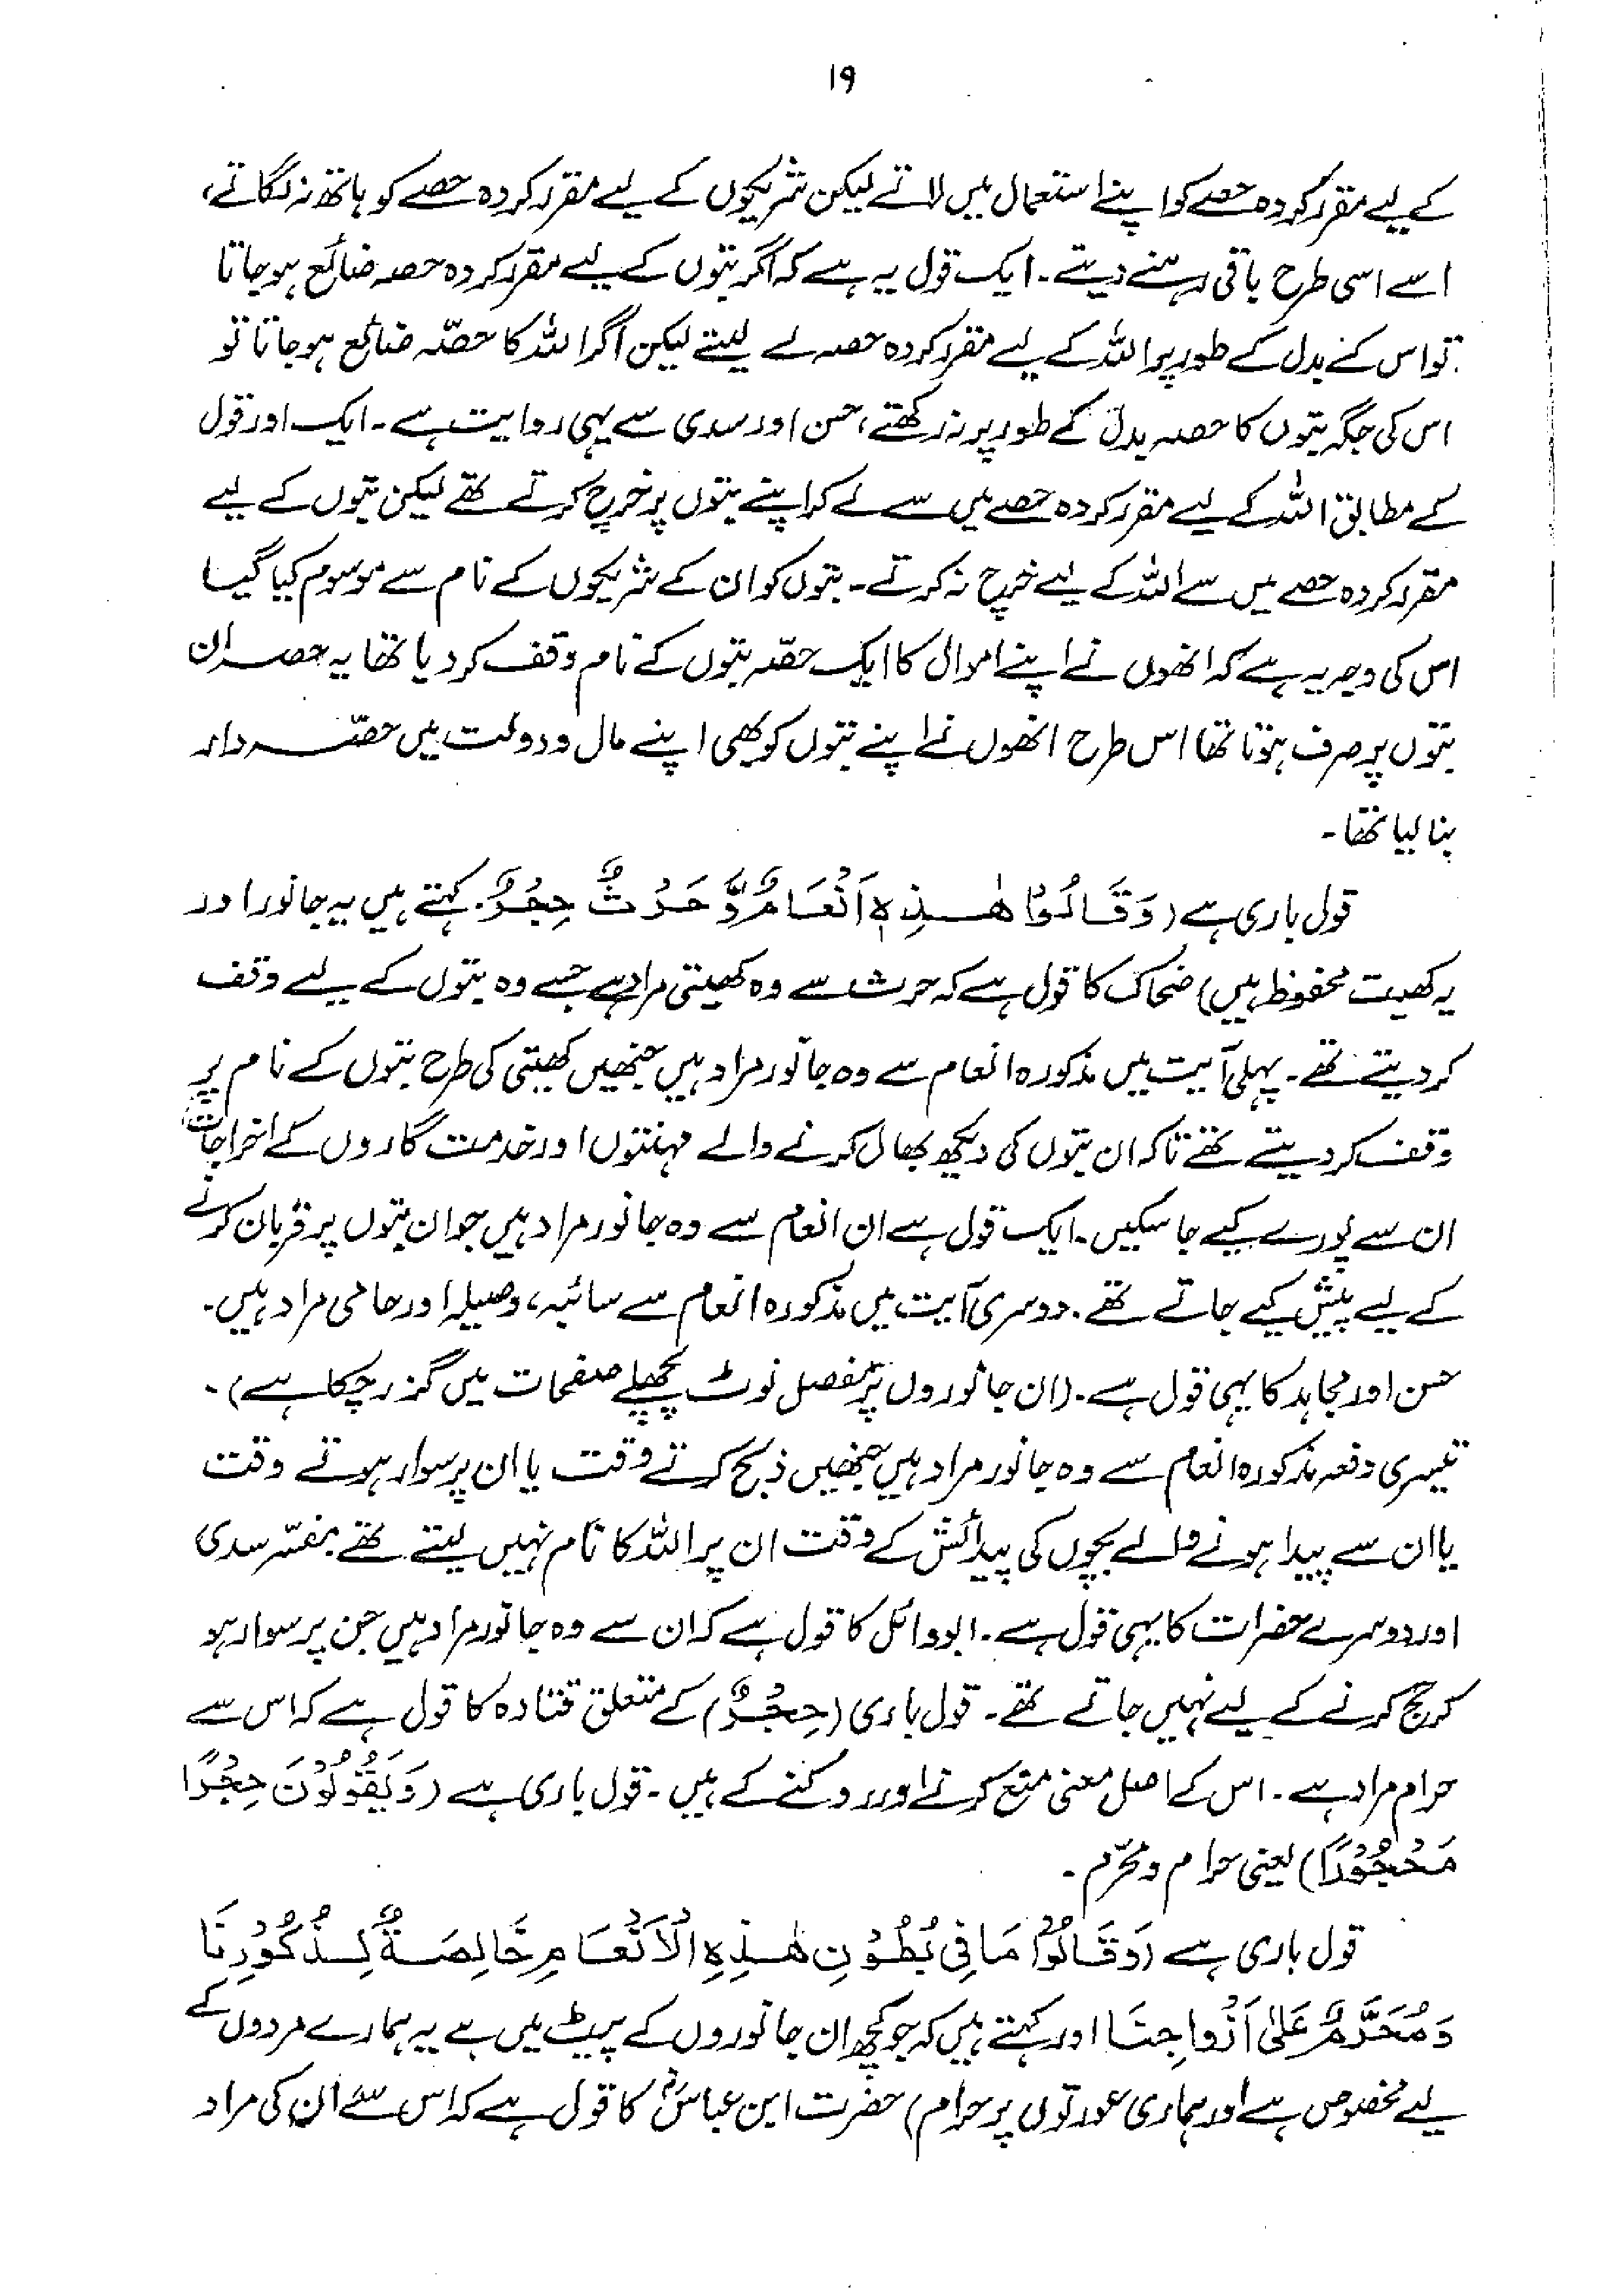 ۱۹
کے لیے مقرر کردہ حصے کو اپنے استعمال میں لاتے لیکن شریکوں کے لیے مقرر کردہ حصے کو ہاتھ نہ لگاتے،
اسے اسی طرح باقی رہنے دیتے۔ ایک قول یہ ہے کہ اگر بتوں کے لیے مقرر کردہ حصہ ضائع ہو جاتا
تو اس کے بدل کے طور پر اللہ کے لیے مقرر کردہ حصہ لے لیتے لیکن اگر اللہ کا حصّہ ضائع ہو جاتا تو
اس کی جگہ بتوں کا حصہ بدل کے طور پر نہ رکھتے، حسن اور سدی سے یہی روایت ہے۔ ایک اور قول
کے مطابق اللہ کے لیے مقرر کردہ حصے میں سے لے کر اپنے بتوں پر خرچ کرتے تھے لیکن بتوں کے لیے
مقرر کردہ حصے میں سے اللہ کے لیے خرچ نہ کرتے۔ بتوں کو ان کے شریکوں کے نام سے موسوم کیا گیا
اس کی وجہ یہ ہے کہ انھوں نے اپنے اموال کا ایک حصّہ بتوں کے نام وقف کر دیا تھا یہ حصہ ان
بتوں پر صرف ہوتا تھا اس طرح انھوں نے اپنے بتوں کو بھی اپنے مال و دولت میں حصّہ دار
بنا لیا تھا۔
قول باری ہے (وَقَالُوْا هٰذِهٖ اَنْعَامٌ وَّحَرْثٌ حِجْرٌ. کہتے ہیں یہ جانور اور
یہ کھیت محفوظ ہیں) ضحاک کا قول ہے کہ حرث سے وہ کھیتی مراد ہے جسے وہ بتوں کے لیے وقف
کر دیتے تھے۔ پہلی آیت میں مذکورہ انعام سے وہ جانور مراد ہیں جنھیں کھیتی کی طرح بتوں کے نام پر
وقف کر دیتے تھے تاکہ ان بتوں کی دیکھ بھال کرنے والے مہنتوں اور خدمت گاروں کے اخراجات
ان سے پورے کیے جا سکیں۔ ایک قول ہے ان انعام سے وہ جانور مراد ہیں جو ان بتوں پر قربان کرنے
کے لیے پیش کیے جاتے تھے۔ دوسری آیت میں مذکورہ انعام سے سائبہ، وصیلہ اور حامی مراد ہیں۔
حسن اور مجاہد کا یہی قول ہے۔ (ان جانوروں پر مفصل نوٹ پچھلے صفحات میں گزر چکا ہے)۔
تیسری دفعہ مذکورہ انعام سے وہ جانور مراد ہیں جنھیں ذبح کرتے وقت یا ان پر سوار ہوتے وقت
یا ان سے پیدا ہونے والے بچوں کی پیدائش کے وقت ان پر اللہ کا نام نہیں لیتے تھے۔ مفسّر سدی
اور دوسرے حضرات کا یہی قول ہے۔ ابو وائل کا قول ہے کہ ان سے وہ جانور مراد ہیں جن پر سوار ہو
کر حج کرنے کے لیے نہیں جاتے تھے۔ قول باری (حِجْرٌ) کے متعلق قتادہ کا قول ہے کہ اس سے
حرام مراد ہے۔ اس کے اصل معنی منع کرنے اور روکنے کے ہیں۔ قول باری ہے (وَيَقُوْلُوْنَ حِجْرًا
مَحْجُوْرًا) یعنی حرام و محرّم۔
قول باری ہے (وَقَالُوْا مَا فِيْ بُطُوْنِ هٰذِهِ الْاَنْعَامِ خَالِصَةٌ لِّذُكُوْرِنَا
وَمُحَرَّمٌ عَلٰى اَزْوَاجِنَا اور کہتے ہیں کہ جو کچھ ان جانوروں کے پیٹ میں ہے یہ ہمارے مردوں کے
لیے مخصوص ہے اور ہماری عورتوں پر حرام) حضرت ابن عباسؓ کا قول ہے کہ اس سے ان کی مراد